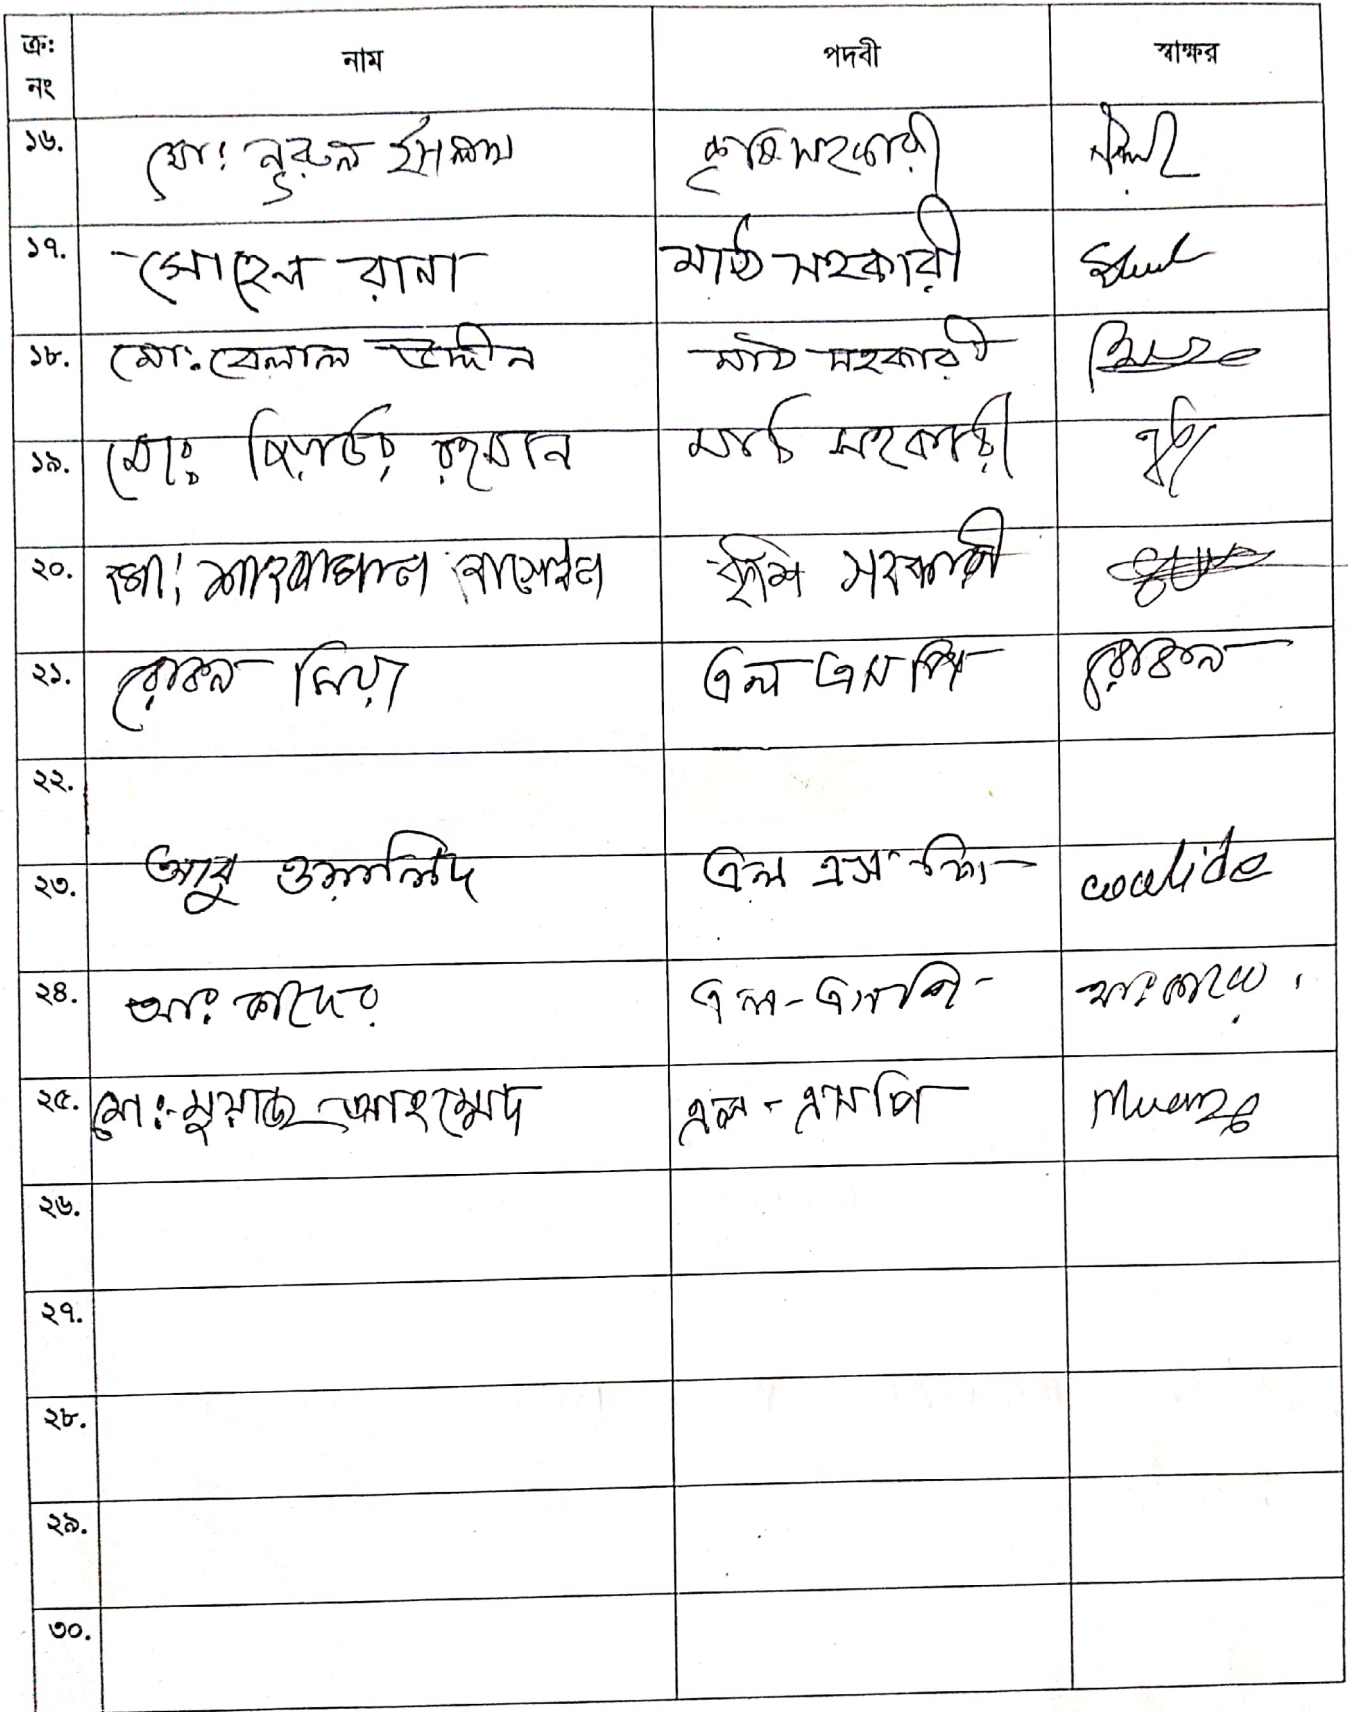 ক্র: নং নাম পদবী স্বাক্ষর
১৬. মো: নুরুল ইসলাম কৃষি সহকারী
১৭. সোহেল রানা মাঠ সহকারী
১৮. মো: বেলাল উদ্দীন মাঠ সহকারী
১৯. মোঃ রহমান মাঠ সহকারী
২০. মো: কৃষি সহকারী
২১. রোকন মিয়া এল এস পি রোকন
২২.
২৩. আবু ওয়ালিদ এল এস পি walide
২৪. আঃ কাদের এল-এসপি আঃ কাদের
২৫. মো:- মুয়াজ আহম্মেদ এল-এসপি
২৬.
২৭.
২৮.
২৯.
৩০.